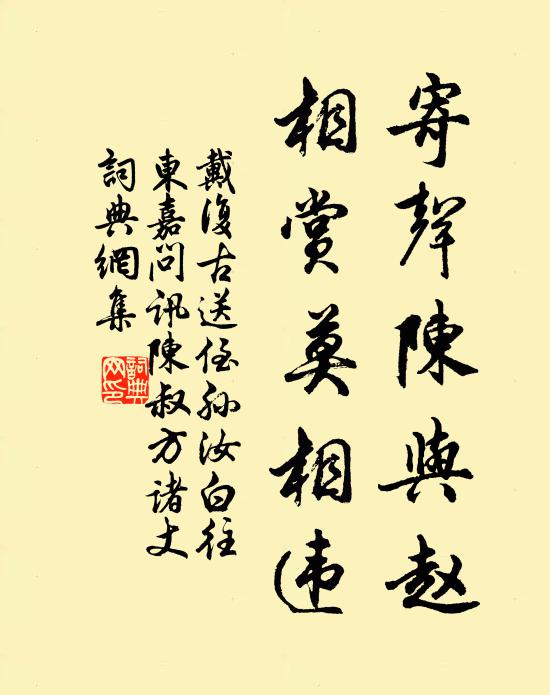 寄聲陳與趙
相賞莫相违
戴復古送侄孫汝白往
東嘉問訊陳叔方諸丈
詞典網集
詞典
网印